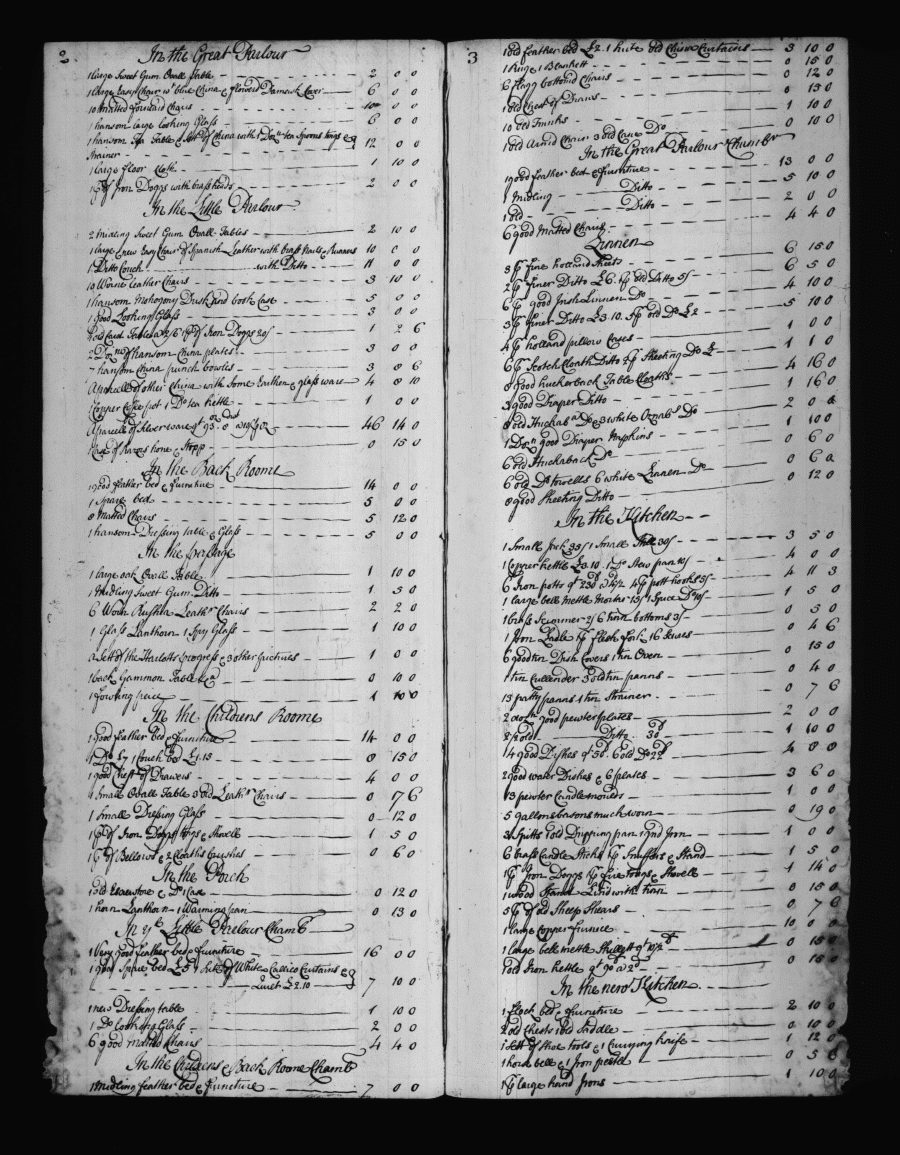 2
In the Great Parlour
1 large Sweet Gum Ovall Table 2 0 0
1 large Easy Chair wth blue China & flowerd Damask Cover 6 0 0
10 Matted fountain Chairs 10 0 0
1 hansom large looking Glass 6 0 0
1 hansom Tea Table & Sett of China with 1 Dozn tea Spoons tongs &
Strainer 12 0 0
1 large floor Cloth 1 10 0
1 pr of Iron Doggs with brass heads 2 0 0
In the Little Parlour
2 midling Sweet Gum Ovall Tables 2 10 0
1 large new Easy Chair of Spanish Leather with brass Nails & Runners 10 0 0
1 Ditto Couch with Ditto 11 0 0
10 Worne Leather Chairs 3 10 0
1 hansom Mohogony Dusk and book Case 5 0 0
1 good Looking Glass 3 0 0
old Card Table 2/6 1 pr of Iron Doggs 20/ 1 2 6
2 Dozn of hansom China plates 3 0 0
7 hansom China punch bowles 3 8 6
A parcell of other China with Some Earthen & glass ware 4 8 10
1 Copper Coffe pot 1 Do tea kettle 1 0 0
A parcell of Silver ware 46 14 0
Case of Razors hone & Stropp 0 15 0
In the Back Roome
1 good feather bed & furniture 14 0 0
1 Spare bed 5 0 0
8 Matted Chairs 5 12 0
1 hansom Dressing table & Glass 5 0 0
In the passage
1 large oak Ovall Table 1 10 0
1 Midling Sweet Gum Ditto 1 5 0
6 Worn Russhia Leathr Chairs 2 2 0
1 Glass Lanthorn 1 Spry Glass 1 10 0
a Sett of the Harlotts progress & 3 other pictures 1 0 0
1 back Gammon Table &c 0 10 0
1 fowling peice 1 10 0
In the Childrens Roome
1 good feather bed & furniture 14 0 0
1 Do £7 1 Couch bed £1.15 8 15 0
1 good Chest of Drawers 4 0 0
1 Small Ovall Table 3 old Leathr Chairs 0 17 6
1 Small Dressing Glass 0 12 0
1 pr of Iron Doggs tongs & Shovell 1 5 0
1 pr of Bellows & 2 Cloaths brushes 0 6 0
In the Porch
1 old 0 12 0
1 horn Lanthorn 1 Warming pan 0 13 0
In ye Little Parlour Chamb
1 Very good feather bed & furniture 16 0 0
1 good Spare bed £5 1 Sett of White Callico Curtains &
Quilt £2.10 7 10 0
1 new Dressing table 1 10 0
1 Do looking Glass 2 0 0
6 good matted Chairs 4 4 0
In the Childrens & Back Roome Chamb
1 Midling feather bed & furniture 7 0 0
3
1 old feather bed £2. 1 Sute old China Curtains 3 10 0
1 Ruge 1 Blankett 0 15 0
6 flagg bottomd Chairs 0 12 0
1 old Chest of Draws 0 13 0
10 old Trunks 1 10 0
1 old Armd Chair 3 old Cane Do 0 10 0
In the Great Parlour Chambr
1 good feather bed & furniture 13 0 0
1 Midling Ditto 5 10 0
1 old Ditto 2 0 0
6 good Matted Chairs 4 4 0
Linnen
3 pr fine holland Sheets 6 15 0
2 pr finer Ditto £6. 1 pr old Ditto 5/ 6 5 0
6 pr good Irish Linnen Do 4 10 0
3 pr finer Ditto £3.10. 5 pr old Do £2 5 10 0
4 pr holland pillow Cases 1 0 0
6 pr Scotch Cloath Ditto 2 pr Sheeting Do 1 1 0
8 good huckerback Table Cloaths 4 16 0
3 good Draper Ditto 1 16 0
8 old Huckabk Do 3 white Oznabs Do 2 0 0
1 Dozn good Diaper Napkins 1 10 0
6 old Huckaback Do 0 6 0
6 old Do towells 6 white Linnen Do 0 6 0
8 good Sheeting Ditto 0 12 0
In the Kitchen
1 Small Jack 35/ 1 Small Still 30/ 3 5 0
1 Copper kettle £3.10. 1 Do Stew pan 10/ 4 0 0
6 Iron potts 4 pr pott hooks 5/ 4 11 3
1 large bell mettle Mortar 15/ 1 Spice Do 10/ 1 5 0
1 brass Scimmer 2/ 6 tinn bottoms 3/ 0 5 0
1 Iron Ladle 1 pr flesh fork 16 Scures 0 4 6
6 good tin Dish Covers 1 tin Oven 0 15 0
1 tin Cullender 3 old tin panns 0 4 0
13 patty panns 1 tin Strainer 0 7 6
2 dozn good pewter plates 2 0 0
2 old Ditto 30 1 10 0
14 good Dishes 6 old Do 4 8 0
2 good water Dishes & 6 plates 3 6 0
13 pewter Candlemoulds 1 0 0
5 gallon basons much worn 0 19 0
3 Spitts 1 old Dripping pan 1 Gred Iron 1 0 0
6 brass Candle Sticks 1 pr Snuffers & Stand 1 5 0
1 pr Iron Doggs 1 pr fire tongs & Shovell 1 14 0
1 wood Stand 0 15 0
5 pr of old Sheep Shears 0 7 6
1 large Copper furnice 10 0 0
1 large bell mettle Skillett 0 15 0
1 old Iron kettle 0 15 0
In the new Kitchen
1 flock bed & furniture 2 10 0
2 old Chests 1 old Saddle 0 10 0
1 Sett of Shoe tools & 1 Currying knife 1 12 0
1 hand bell & 1 Iron pestle 0 5 6
1 pr large hand Irons 1 10 0